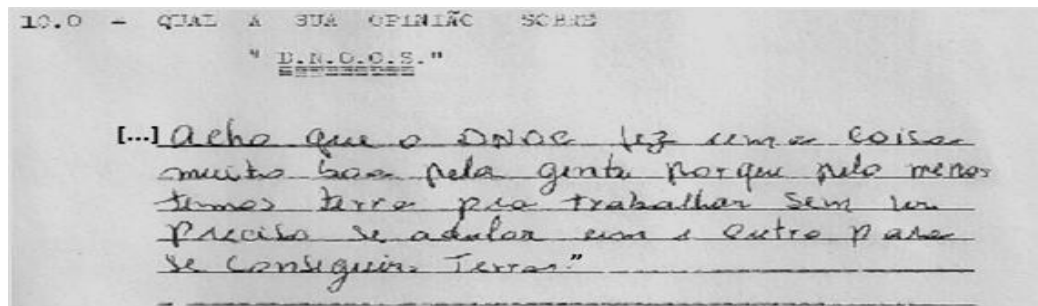 10.0 - QUAL A SUA OPINIÃO SOBRE
" D.N.O.C.S."
[...] Acho que o DNOC fez uma coisa
muito boa pela gente porque pelo menos
temos terra pra trabalhar sem
Preciso se adular um e outro para
se conseguir Terras"